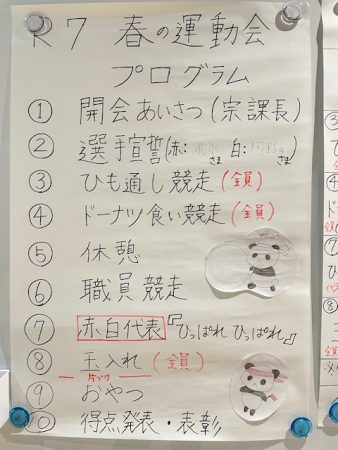 R7 春の運動会
プログラム
① 開会あいさつ(宗課長)
② 選手宣誓(赤: さま 白: さま
③ ひも通し競走(全員)
④ ドーナツ食い競走(全員)
⑤ 休憩
⑥ 職員競走
⑦ 赤白代表『ひっぱれひっぱれ』
⑧ 玉入れ(全員)
⑨ おやつ
⑩ 得点発表・表彰